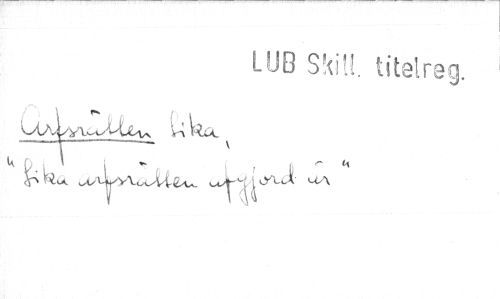 LUB Skill. titelreg.
Arfsrätten lika,
"Lika arfsrätten upgjord är"